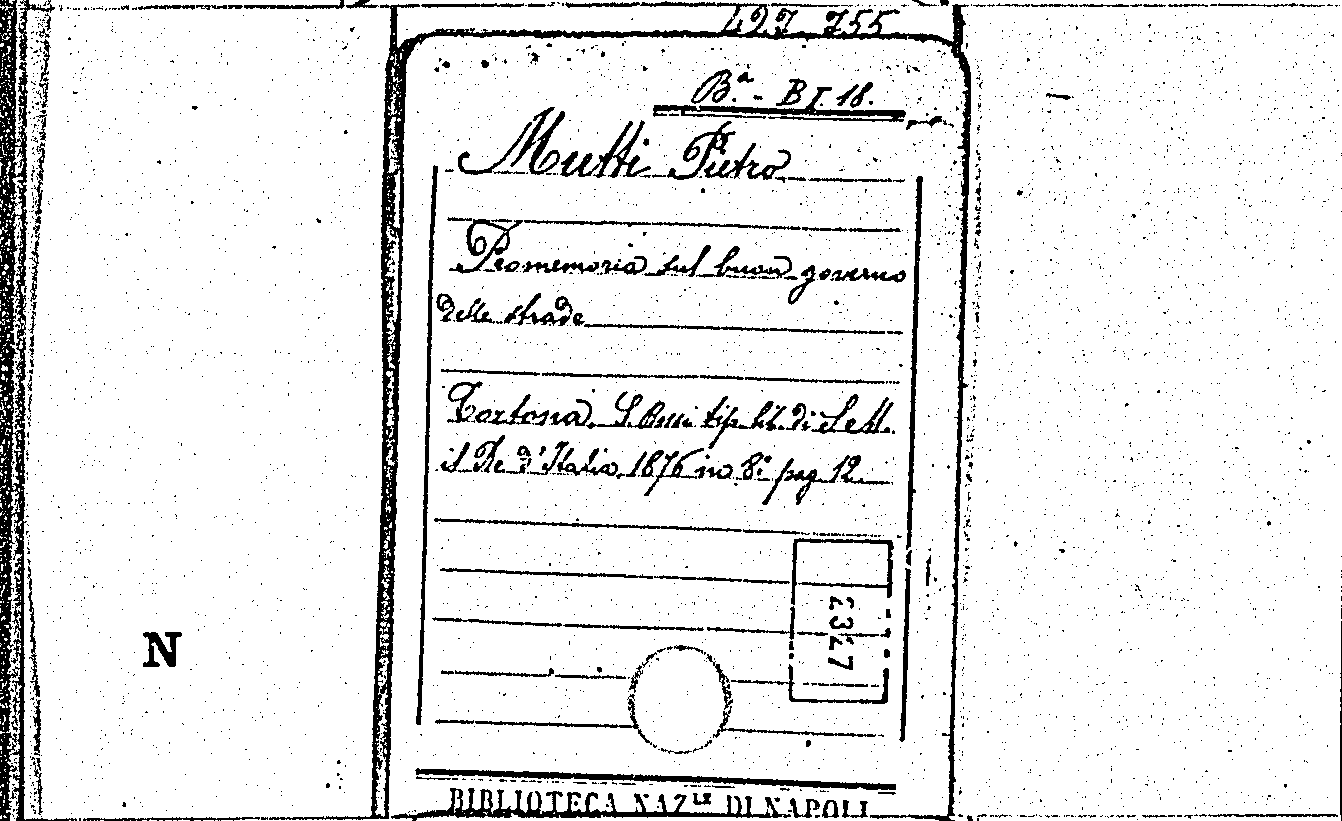 427 755
B.ª - B I. 18.
Mutti Pietro
Promemoria sul buon governo
delle strade
Tortona, S. Rossi tip. lit. di
il Re d'Italia, 1876 in 8.° pag 12.
2327
N
BIBLIOTECA NAZLE DI NAPOLI